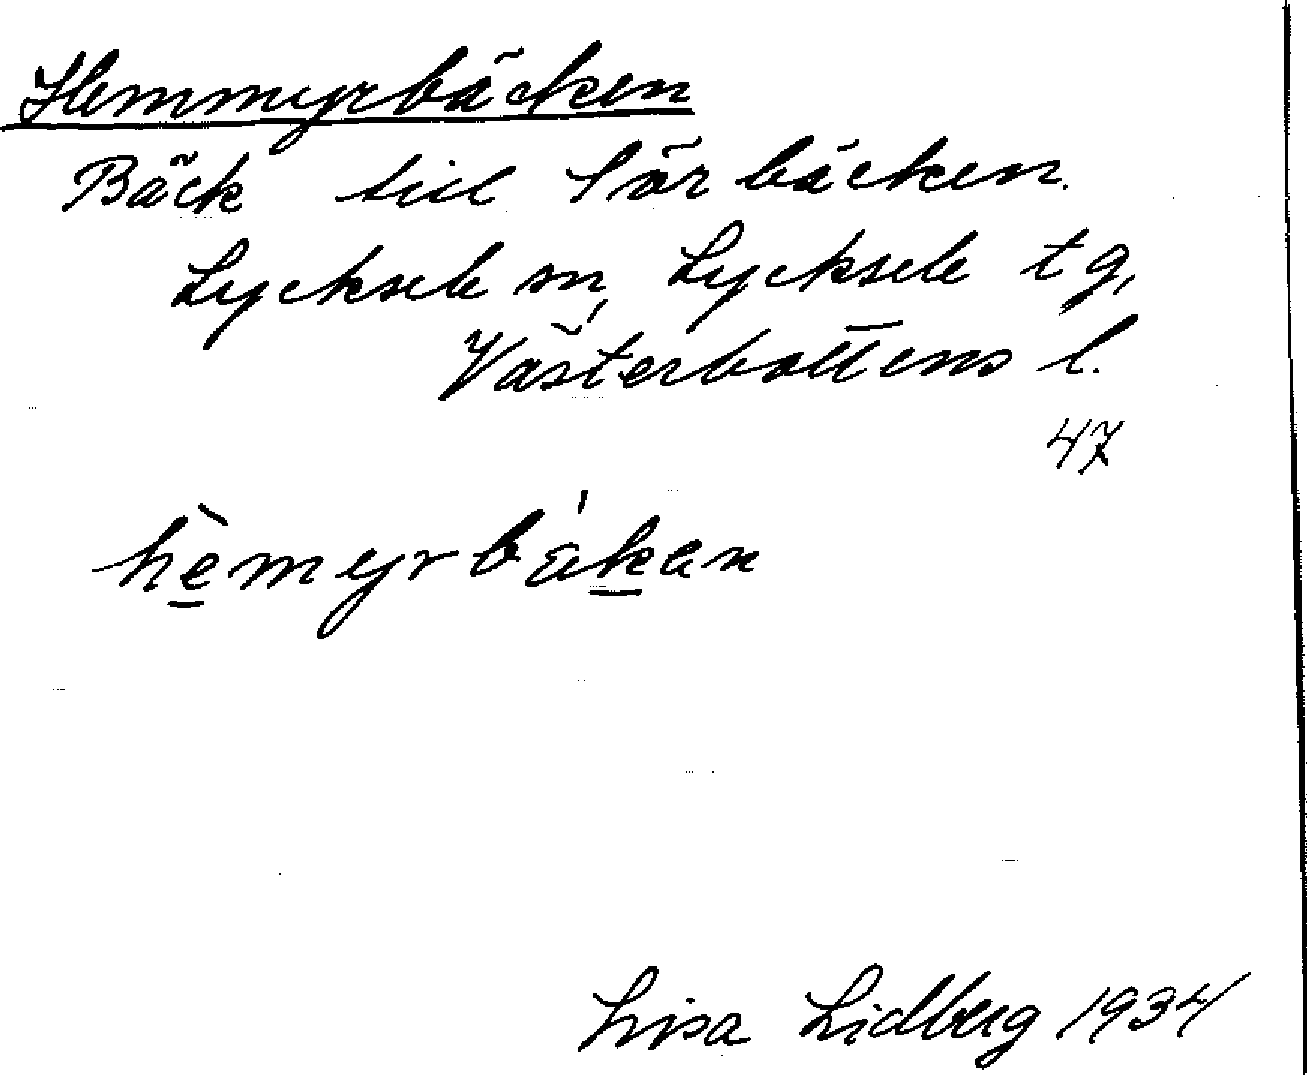 Hemmyrbäcken
Bäck till Sörbäcken.
Lycksele sn, Lycksele tg,
Västerbottens l.
47
hèmyrbäkan
Lisa Lidberg 1934